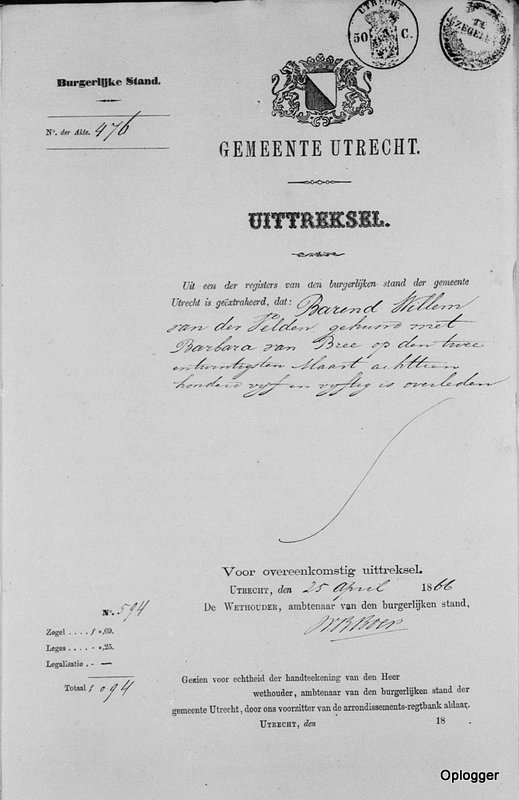 UTRECHT
50 C.
ZEGEL
Burgerlijke Stand.
No. der Akte. 476
GEMEENTE UTRECHT.
UITTREKSEL.
Uit een der registers van den burgerlijken stand der gemeente
Utrecht is geëxtraheerd, dat: Barend Willem
van der Velden, gehuwd met
Barbara van Bree op den twee
entwintigsten Maart achttien
honderd vyf en vyftig is overleden
Voor overeenkomstig uittreksel.
UTRECHT, den 25 April 1866
De WETHOUDER, ambtenaar van den burgerlijken stand,
No. 594
Zegel . . . . f „69.
Leges . . . . „ „25.
Legalisatie . „ —
Totaal f 0 94
Gezien voor echtheid der handteekening van den Heer
wethouder, ambtenaar van den burgerlijken stand der
gemeente Utrecht, door ons voorzitter van de arrondissements-regtbank aldaar.
UTRECHT, den 18
Oplogger